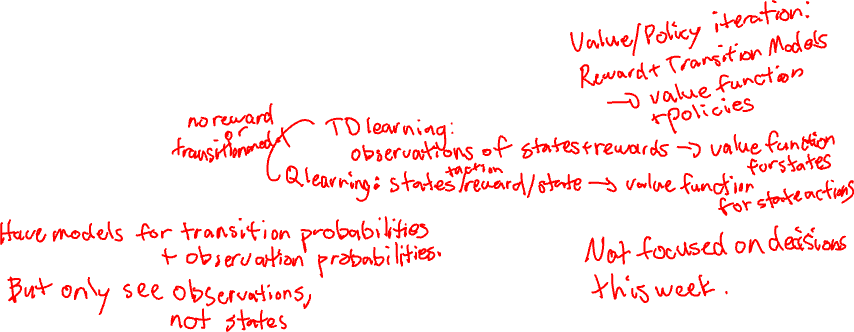 Value/Policy iteration:
Reward + Transition Models
→ value function
+ policies
no reward
or
transition model
TD learning:
observations of states + rewards → value function
for states
Q learning: states/reward/state → value function
+action
for state actions
Have models for transition probabilities
+ observation probabilities.
But only see observations,
not states
Not focused on decisions
this week.